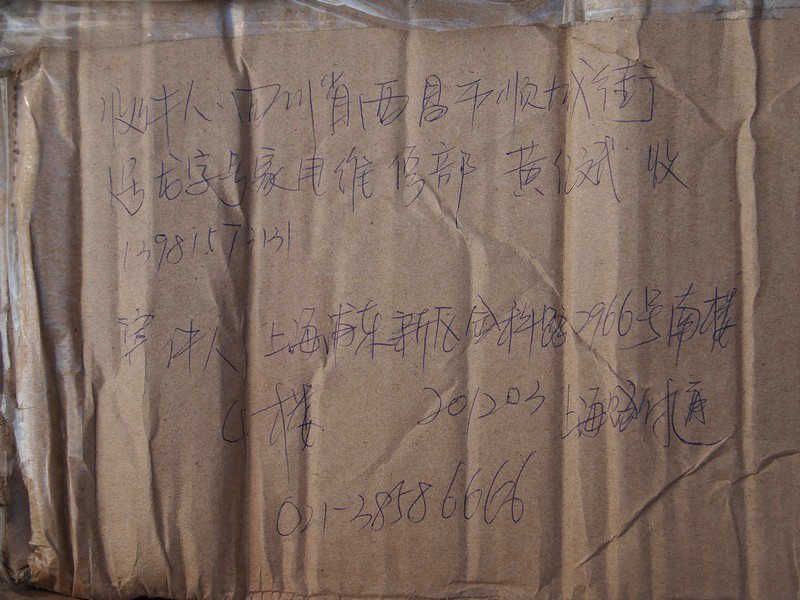 收件人:四川省西昌市顺城街
号龙字号家电维修部 黄仁斌 收
13981572131
寄件人 上海浦东新区金科路2966号南楼
楼 201203 上海
021-38586666